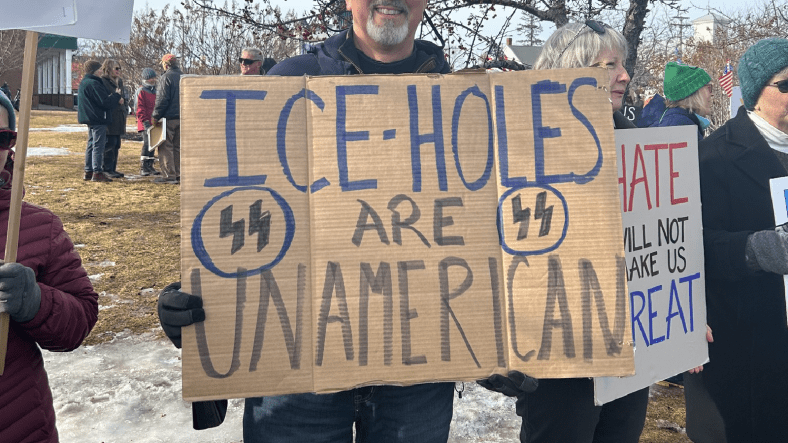 ICE-HOLES
ϟϟ ARE ϟϟ
UNAMERICAN
HATE
WILL NOT
MAKE US
GREAT